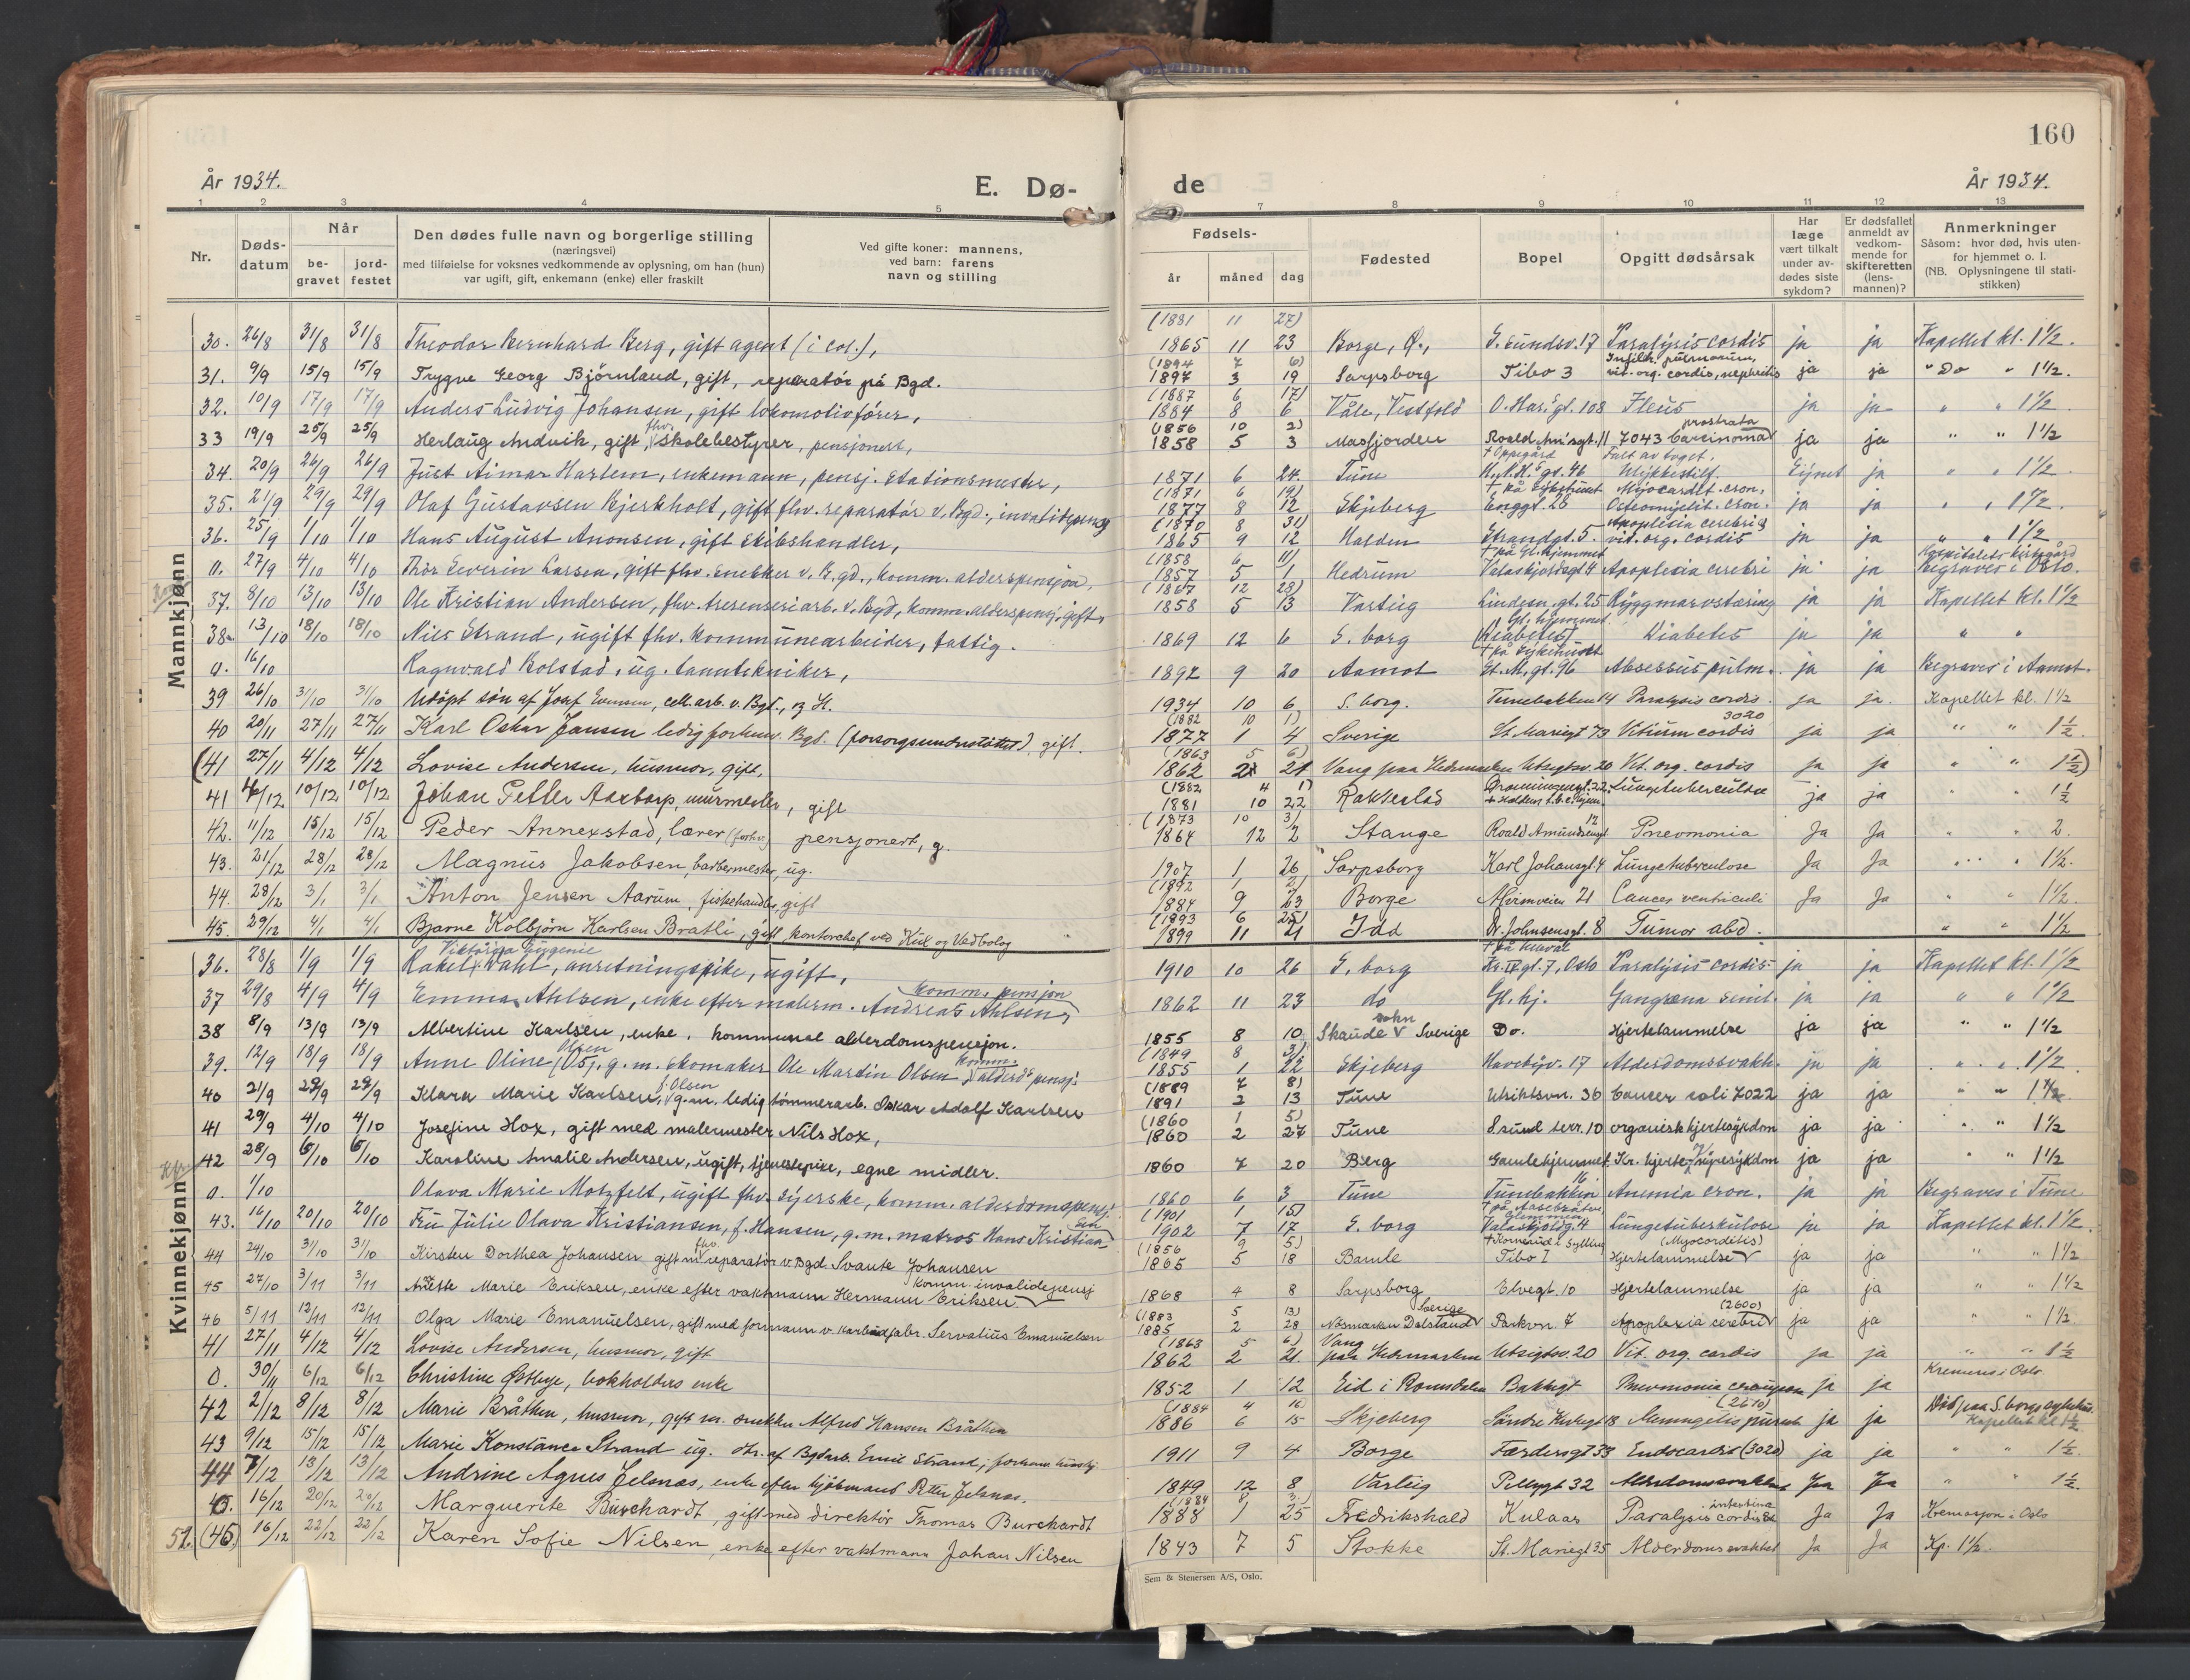 160
År 1934.
E. Dø-
de
År 1934.
1 2 3 4 5 7 8 9 10 11 12 13
Nr.
Døds-
datum
Når
be-
gravet
jord-
festet
Den dødes fulle navn og borgerlige stilling
(næringsvei)
med tilføielse for voksnes vedkommende av oplysning, om han (hun)
var ugift, gift, enkemann (enke) eller fraskilt
Ved gifte koner: mannens,
ved barn: farens
navn og stilling
Fødsels-
år måned dag
Fødested
Bopel
Opgitt dødsårsak
Har
læge
vært tilkalt
under av-
dødes siste
sykdom?
Er dødsfallet
anmeldt av
vedkom-
mende for
skifteretten
(lens-
mannen)?
Anmerkninger
Såsom: hvor død, hvis uten-
for hjemmet o. l.
(NB. Oplysningene til stati-
stikken)
Mannkjønn
(1881 11 27)
30. 26/8 31/8 31/8 Theodor Bernhard Berg, gift agent (i col.), 1865 11 23 Borge, Ø., G. sundsv. 17 Paralysis cordis ja ja Kapellet kl. 1½.
(1894 7 6) Infiltr. pulmonum,
31. 9/9 15/9 15/9 Trygve Georg Bjørnland, gift, reparatør på Bgd. 1897 3 19 Sarpsborg Tibo 3 vit. org. cordis, nephritis ja ja " Do " 1½.
(1887 6 17)
32. 10/9 17/9 17/9 Anders Ludvig Johansen, gift lokomotivfører, 1884 8 6 Våle, Vestfold O. Har. gt. 108 Ileus ja ja " " 1½
(1856 10 2) prostrata
33 19/9 25/9 25/9 Herlaug Andvik, gift, fhv. skolebestyrer, pensjonert, 1858 5 3 Masfjorden Roald Am'sgt. 11 7043 Carcinoma ja ja " " 1½
† Oppegård Falt av toget.
34. 20/9 26/9 26/9 Just Aimar Harlem, enkemann, pensj. stationsmester, 1871 6 24 Tune H.N.H.s gt. 46 Ulykkestilf. ja " " 1½
(1871 6 19) † på Sykehuset Myocardit. cron.
35. 21/9 29/9 29/9 Olaf Gustavsen Bjerkholt, gift fhv. reparatør v. Bgd., invalidepensj 1877 8 12 Skjeberg Enggt. 28 Osteomyelit. cron. ja ja " " 1½.
(1870 8 31) Apoplexia cerebri &
36. 25/9 1/10 1/10 Hans August Anonsen, gift skibshandler, 1865 9 12 Halden Strandgt. 5 vit. org. cordis ja ja " " 1½
(1858 6 11) † på Gl. hjemmet
0. 27/9 4/10 4/10 Thor Severin Larsen, gift fhv. snekker v. B.gd., komm. alderspensjon, 1857 5 1 Hedrum Valaskjoldsgt 4 Apoplexia cerebri ja ja Begraves i Oslo.
(1867 12 28)
37. 8/10 13/10 13/10 Ole Kristian Andersen, fhv. tresenseriarb. v. Bgd, komm. alderspensj. gift, 1858 5 13 Varteig Lindesn. gt. 25 Ryggmarvstæring ja ja Kapellet kl. 1½
Gl. hjemmet
38. 13/10 18/10 18/10 Nils Strand, ugift fhv. kommunearbeider, fattig. 1869 12 6 S. borg (Diabetes) Diabetes ja ja " "
† på Sykehuset
0. 16/10 Ragnvald Bolstad, ug. tanntekniker, 1892 9 20 Aamot St. M. gt. 96 Absessus pulm. ja ja Begraves i Aamot.
39 26/10 31/10 31/10 Udöpt sön af Josef Evensen, cell. arb. v. Bgd., og H. 1934 10 6 S. borg. Tunebakken 14 Paralysis cordis. ja ja. Kapellet kl. 1½
(1882 10 1) 3020
40 20/11 27/11 27/11 Karl Oskar Jansen ledig forhenv. Bgd. (forsorgsunderstøttet) gift. 1877 1 4 Sverige St. Mariegt 73 Vitium cordis ja ja " " 1½.
(1863 5 6)
(41 27/11 4/12 4/12 Lovise Andersen, husmor, gift, 1862 2 21 Vang paa Hedemarken Utsigtsv. 20 Vit. org. cordis ja ja " " 1½)
(1882 4 1)
41 4/12 10/12 10/12 Johan Petter Aartorp, murmester, gift 1881 10 22 Rakkestad Dronningensgt. 22 Lungetuberculose ja ja " " 1½
(1873 10 3) 12
42. 11/12 15/12 15/12 Peder Annexstad, lærer (forhv.) pensjonert, g. 1864 12 2 Stange Roald Amundsensgt Pneomonia Ja Ja " " 2.
43. 21/12 28/12 28/12 Magnus Jakobsen, barbermester, ug. 1907 1 26 Sarpsborg Karl Johansgt. 4 Lungetuberculose Ja Ja " " 1½.
(1892 1 2)
44. 28/12 3/1 3/1 Anton Jensen Aarum, fiskehandler, gift 1884 9 23 Borge Alvimveien 21 Cancer ventriculi Ja Ja " " 1½.
(1893 6 25)
45. 29/12 4/1 4/1 Bjarne Kolbjørn Karlsen Bratli, gift kontorchef ved Kiil og Vedbolag 1899 11 21 Idd Dr. Johnsensgt. 8 Tumor abd. " " 1½
Kvinnekjønn
Viktoria Eugenie
36. 28/8 1/9 1/9 Rakel Dahl, anretningspike, ugift, 1910 10 26 S. borg Kr. IV gt. 7, Oslo Paralysis cordis ja ja Kapellet kl. 1½
komm. pensjon
37 29/8 4/9 4/9 Emma Ahlsen, enke efter malerm. Andreas Ahlsen, 1862 11 23 do Gl. hj. Gangræna senil. ja ja " " 1½
sokn
38 8/9 13/9 13/9 Albertine Karlsen, enke, kommunal alderdomspensjon. 1855 8 10 Skaude Sverige Do. Hjertelammelse ja ja " " 1½
(1849 8 3) Olsen komm.
39. 12/9 18/9 18/9 Anne Oline, g. m. skomaker Ole Mardin Olsen, alderds pensj. 1855 1 22 Skjeberg Havebyv. 17 Alderdomssvakh. ja ja " " 1½
(1889 7 8) f. Olsen
40 21/9 29/9 29/9 Klara Marie Karlsen, g. m. ledig tømmerarb. Oskar Adolf Karlsen 1891 2 13 Tune Utsiktsvn. 36 Cancer coli 7022 ja ja " " 1½
(1860 1 5)
41 29/9 4/10 4/10 Josefine Hox, gift med malermester Nils Hox, 1860 2 27 Tune S. sund terr. 10 organisk hjertesykdom ja ja " " 1½
42 28/9 6/10 6/10 Karoline Amalie Andersen, ugift, tjenestepike, egne midler. 1860 7 20 Berg Gamlehjemmet Kr. hjerte- nyresykdom ja ja " " 1½
0. 1/10 Olava Marie Motzfelt, ugift fhv. syerske, komm. alderdomspensj. 1860 6 3 Tune Tunebakken 16 Anemia cron. ja ja Begraves i Tune
(1901 1 15)
43. 16/10 20/10 20/10 Fru Julie Olava Kristiansen, f. Hansen, g. m. matros Hans Kristiansen 1902 7 17 S. borg Valaskjoldg. 4 Lungetuberkulose ja ja Kapellet kl. 1½
(1856 9 5) fhv. † Kornerud i Sylling (Myocorditis)
44 24/10 31/10 31/10 Kirsten Dorthea Johansen gift m. reparatør v. Bgd. Svante Johansen 1865 5 18 Bamle Tibo I Hjertelammelse ja ja " " 1½
komm. invalidepensj
45 27/10 3/11 3/11 Anette Marie Eriksen, enke efter vaktmann Hermann Eriksen 1868 4 8 Sarpsborg Elvegt. 10 Hjertelammelse ja ja " " 1½
(1883 5 13) Sverige (2600)
46 5/11 12/11 12/11 Olga Marie Emanuelsen, gift med formann v. karbidfabr. Servatius Emanuelsen 1885 2 28 Nösmarken Dalsland Parkvn. 7 Apoplexia cerebri ja ja " " 1½
(1863 5 6) Vang
41 27/11 4/12 4/12 Lovise Andersen, husmor, gift 1862 2 21. paa Hedemarken Utsigtsv. 20 Vit. org. cordis ja ja " " 1½
0. 30/11 6/12 6/12 Christine Østbye, bokholders enke 1852 1 12 Eid i Romsdalen Bakkegt Pneumonia ja ja Kremeres i Oslo.
(1884 4 16) (2610)
42 2/12 8/12 8/12 Marie Bråthen, husmor, gift m. snekker Alfred Hansen Bråthen 1886 6 15 Skjeberg Söndre Kurlegt 18 ja ja Död paa S. borgs sykehus. Kapellet kl. 1½
43 9/12 15/12 15/12 Marie Konstance Strand ug. dtr. af Bgdarb. Emil Strand, 1911 9 4 Borge Færdersgt 33 Endocardit (3020) ja ja " " 1½
44 7/12 13/12 13/12 Andrine Agnes Jelsnæs, enke efter kjöbmand Petter Jelsnæs. 1849 12 8 Varteig Pellygt 32 Alderdomssvakhet Ja Ja " " 1½.
(1884 8 3) intestina
45. 16/12 20/12 20/12 Marguerite Burchardt, gift med direktør Thomas Burchardt 1888 1 25 Fredrikshald Kulaas Paralysis cordis et Ja Ja Kremasjon i Oslo
51. (45) 16/12 22/12 22/12 Karen Sofie Nilsen, enke efter vaktmann Johan Nilsen 1843 7 5 Stokke St. Mariegt 35 Alderdomssvakhet Ja Ja Kp. 1½.
Sem & Stenersen A/S, Oslo.